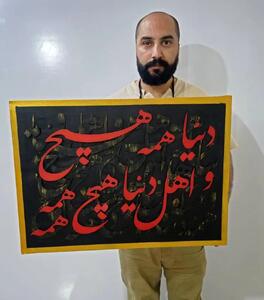 دنیا همه هیچ
و اهل دنیا هیچ همه همه